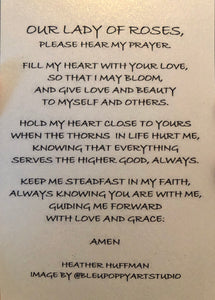 OUR LADY OF ROSES,
PLEASE HEAR MY PRAYER.
FILL MY HEART WITH YOUR LOVE,
SO THAT I MAY BLOOM,
AND GIVE LOVE AND BEAUTY
TO MYSELF AND OTHERS.
HOLD MY HEART CLOSE TO YOURS
WHEN THE THORNS IN LIFE HURT ME,
KNOWING THAT EVERYTHING
SERVES THE HIGHER GOOD, ALWAYS.
KEEP ME STEADFAST IN MY FAITH,
ALWAYS KNOWING YOU ARE WITH ME,
GUIDING ME FORWARD
WITH LOVE AND GRACE.
AMEN
HEATHER HUFFMAN
IMAGE BY @BLEUPOPPYARTSTUDIO